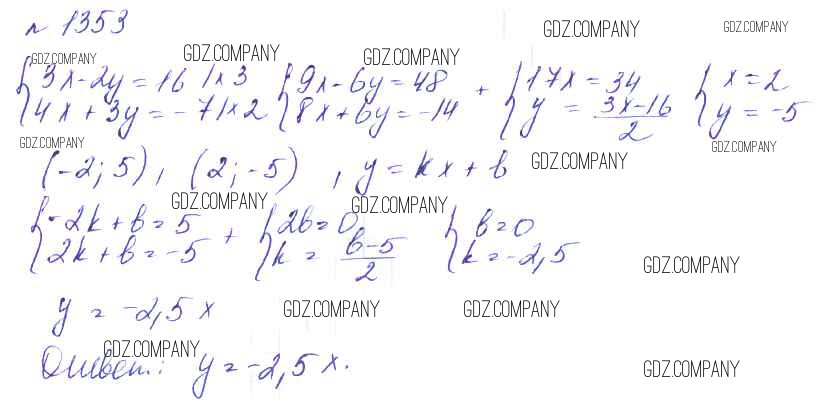 № 1353
GDZ.COMPANY GDZ.COMPANY
GDZ.COMPANY GDZ.COMPANY GDZ.COMPANY
{3x-2y=16 |×3 {9x-6y=48 + {17x=34 {x=2
4x+3y=-7 |×2 8x+6y=-14 y = (3x-16)/2 y=-5
GDZ.COMPANY GDZ.COMPANY
(-2; 5), (2; -5), y=kx+b GDZ.COMPANY
GDZ.COMPANY GDZ.COMPANY
{-2k+b=5 + {2b=0 {b=0
2k+b=-5 k = (b-5)/2 k=-2,5
GDZ.COMPANY
y = -2,5 x GDZ.COMPANY GDZ.COMPANY
GDZ.COMPANY
Ответ: y=-2,5 x.
GDZ.COMPANY